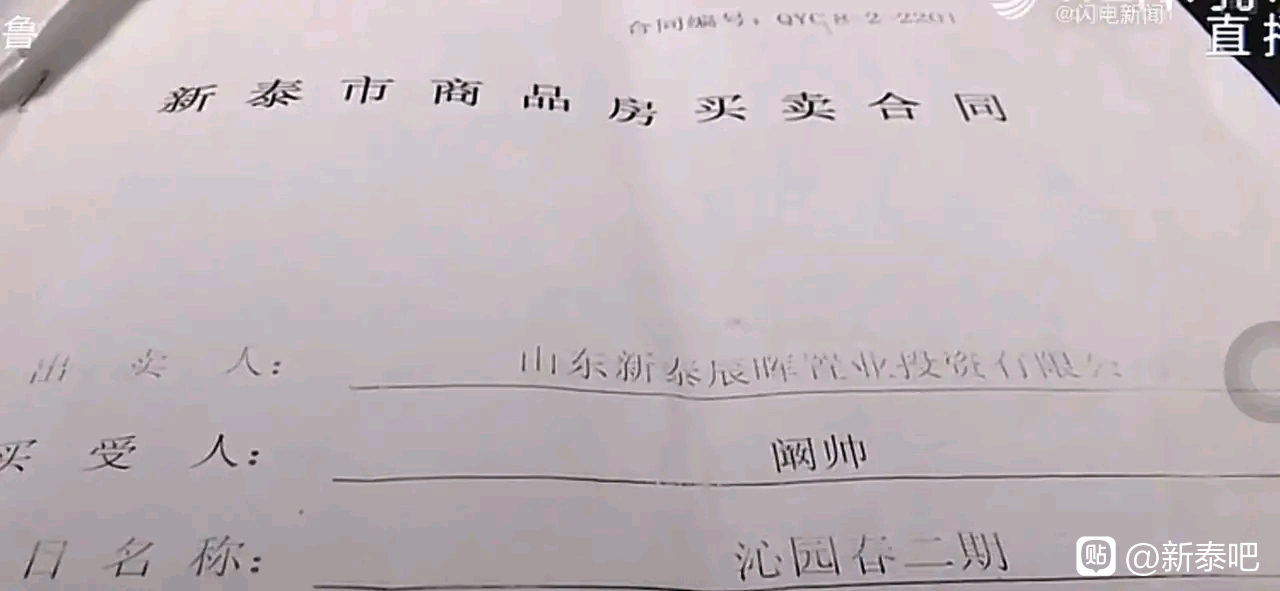 鲁
@闪电新闻
直播
合同编号：QYCK-2-2201
新泰市商品房买卖合同
出卖人：山东新泰辰晖置业投资有限公
买受人：阚帅
目名称：沁园春二期
贴 @新泰吧